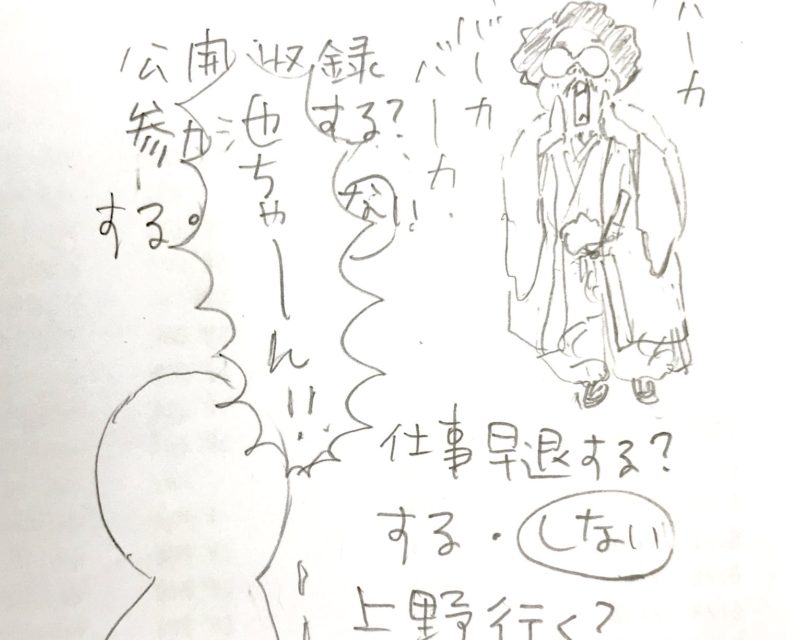 バーカ
バーカ
バーカ
公開収録
参加する?
する。ない
池ちゃーん!!
仕事早退する?
する・しない
上野行く?